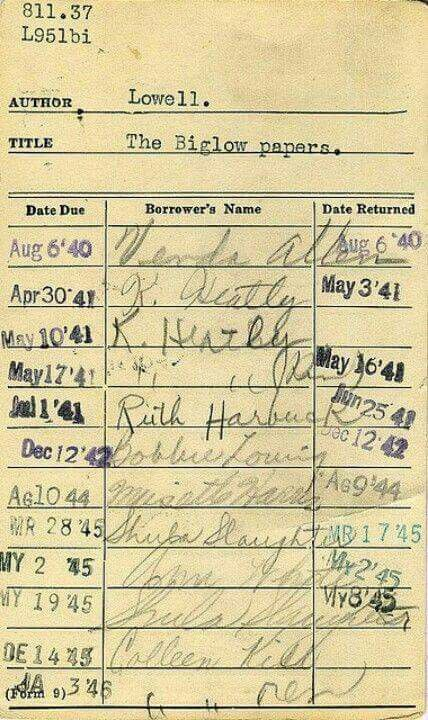 811.37
L951bi
AUTHOR Lowell.
TITLE The Biglow papers.
Date Due Borrower's Name Date Returned
Aug 6'40 Venda Allen Aug 6 '40
Apr 30 '41 K. Heatly May 3 '41
May 10 '41 K. Heatly
May 17 '41 " " May 16 '41
Jul 1 '41 Ruth Harbuck Jun 25 '41
Dec 12 '42 Bobbie Dec 12 '42
Ag 10 44 Ag 9 '44
MR 28 '45 Shula Slaughter MR 17 '45
MY 2 '45 My 2 '45
MY 19 45 Shula My 8 '45
DE 14 45 Colleen
JA 3 '46 " "
(Form 9)